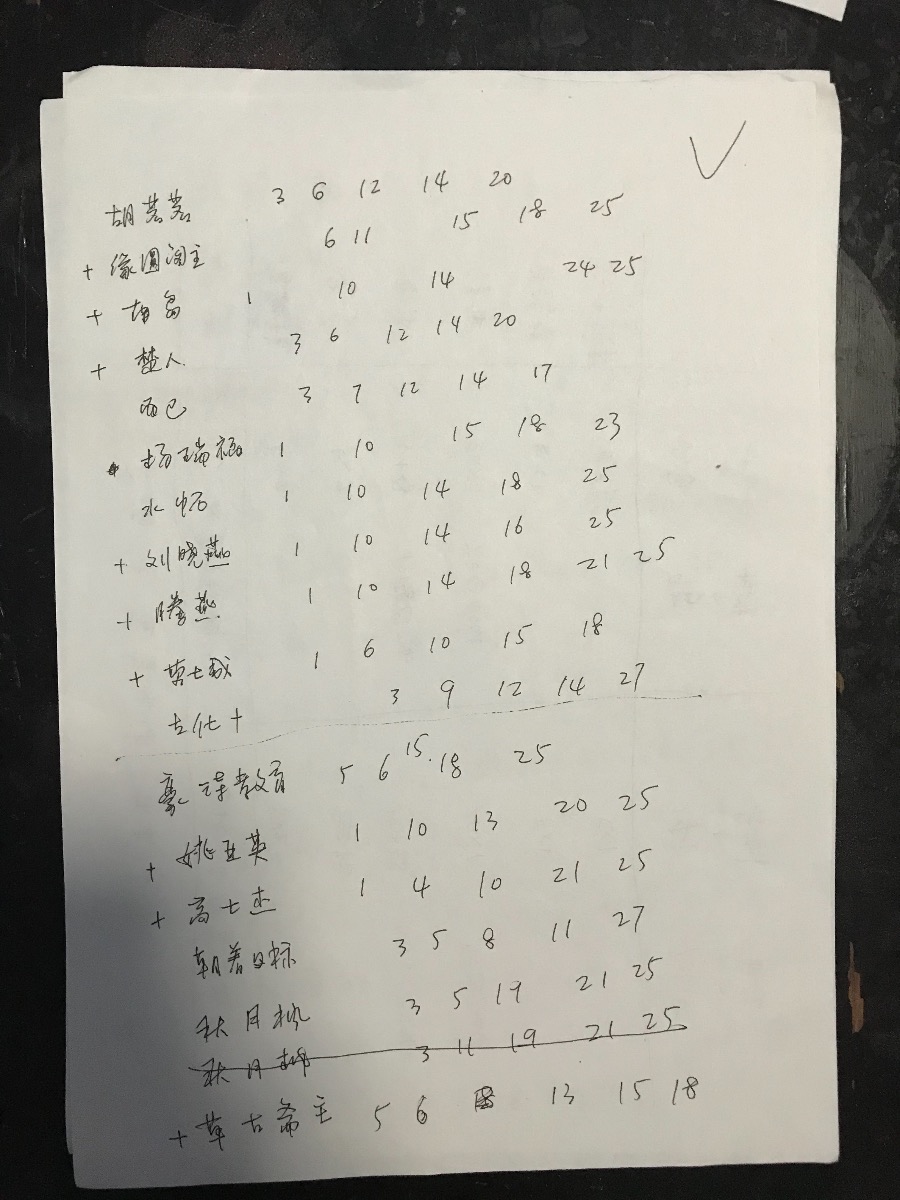 胡茗茗 3 6 12 14 20
+ 缘圆阁主 6 11 15 18 25
+ 胡岛 1 10 14 24 25
+ 楚人 3 6 12 14 20
西巴 3 7 12 14 17
杨瑞福 1 10 15 18 23
水中石 1 10 14 18 25
+ 刘晓燕 1 10 14 16 25
+ 腾燕 1 10 14 18 21 25
+ 草七载 1 6 10 15 18
古化十 3 9 12 14 27
教育 5 6 15 18 25
+ 姚亚英 1 10 13 20 25
+ 高士杰 1 4 10 21 25
朝着目标 3 5 8 11 27
秋月枫 3 5 19 21 25
秋月 3 11 19 21 25
+ 草古斋主 5 6 13 15 18